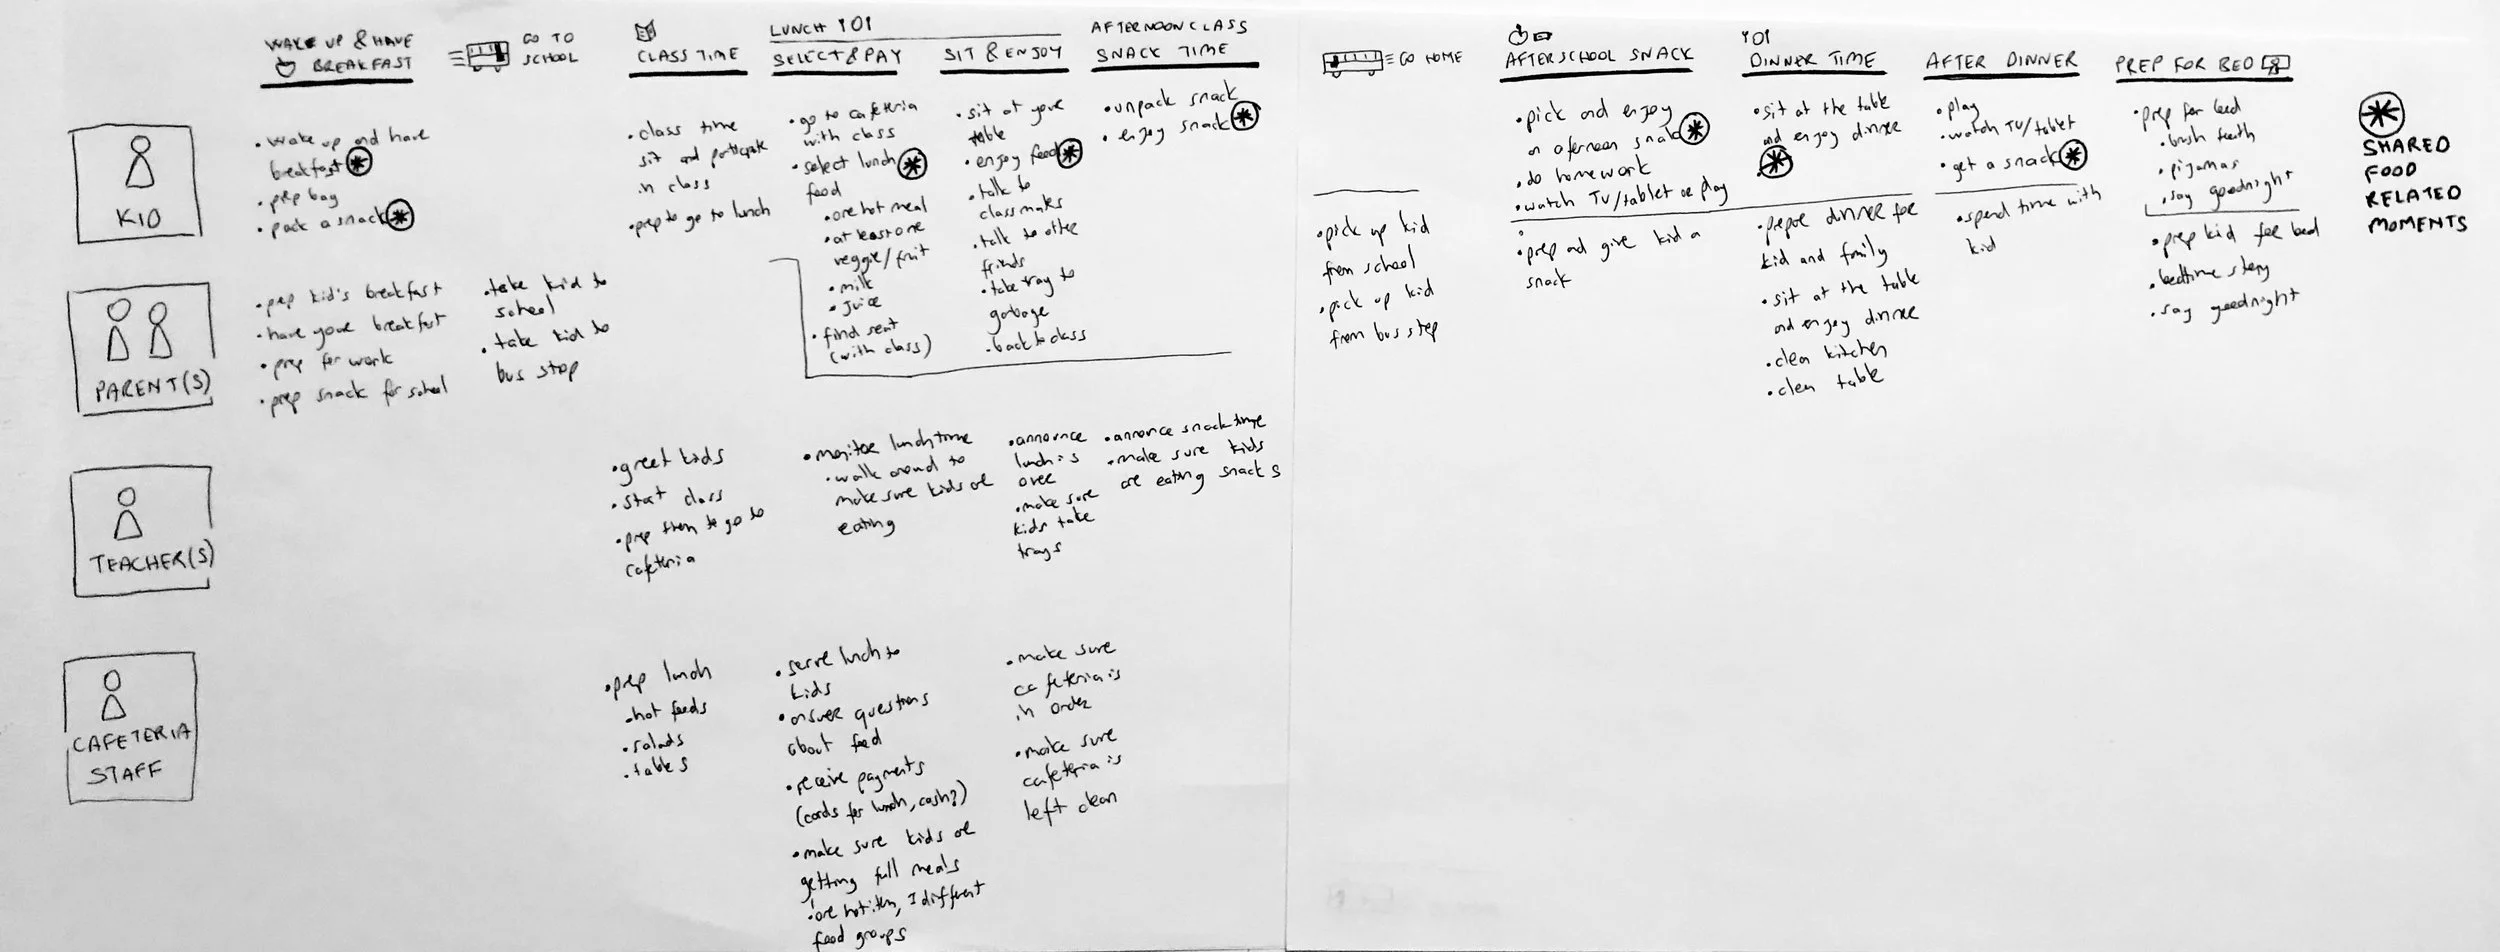 WAKE UP & HAVE
BREAKFAST
GO TO
SCHOOL
CLASS TIME
LUNCH
SELECT & PAY
SIT & ENJOY
AFTERNOON CLASS
SNACK TIME
GO HOME
AFTERSCHOOL SNACK
DINNER TIME
AFTER DINNER
PREP FOR BED
KID
• wake up and have
breakfast
• prep bag
• pack a snack
• class time
sit and participate
in class
• prep to go to lunch
• go to cafeteria
with class
• select lunch
food
• one hot meal
• at least one
veggie/fruit
• milk
• juice
• find seat
(with class)
• sit at your
table
• enjoy food
• talk to
classmates
• talk to other
friends
• take tray to
garbage
• back to class
• unpack snack
• enjoy snack
• pick and enjoy
an afernoon snack
• do homework
• watch TV/tablet or play
• sit at the table
and enjoy dinner
• play
• watch TV/tablet
• get a snack
• prep for bed
• brush teeth
• pijamas
• say goodnight
SHARED
FOOD
RELATED
MOMENTS
PARENT(S)
• prep kid's breakfast
• have your breakfast
• prep for work
• prep snack for school
• take kid to
school
• take kid to
bus stop
• pick up kid
from school
• pick up kid
from bus stop
• prep and give kid a
snack
• prepare dinner for
kid and family
• sit at the table
and enjoy dinner
• clean kitchen
• clean table
• spend time with
kid
• prep kid for bed
• bedtime story
• say goodnight
TEACHER(S)
• greet kids
• start class
• prep them to go to
cafeteria
• monitor lunch time
• walk around to
make sure kids are
eating
• announce
lunch is
over
• make sure
kids take
trays
• announce snack time
• make sure kids
are eating snacks
CAFETERIA
STAFF
• prep lunch
• hot foods
• salads
• tables
• serve lunch to
kids
• answer questions
about food
• receive payments
(cards for lunch, cash?)
• make sure kids are
getting full meals
• one hot item, 2 different
food groups
• make sure
cafeteria is
in order
• make sure
cafeteria is
left clean